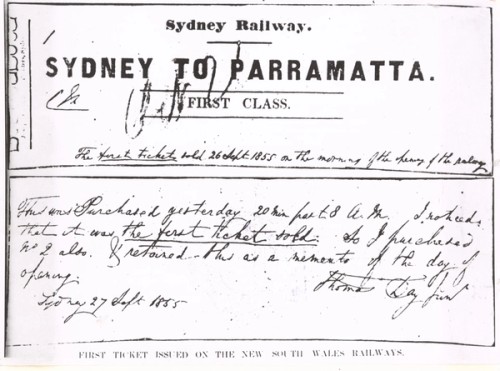 Sydney Railway.
SYDNEY TO PARRAMATTA.
FIRST CLASS.
The first ticket sold 26 Sept 1855 on the morning of the opening of the railway
This was Purchased yesterday 20 min past 8 A.M. I noticed
that it was the first ticket sold. So I purchased
No 2 also. & retained this as a memento of the day of
opening.
Thomas
Sydney 27 Sept 1855
FIRST TICKET ISSUED ON THE NEW SOUTH WALES RAILWAYS.